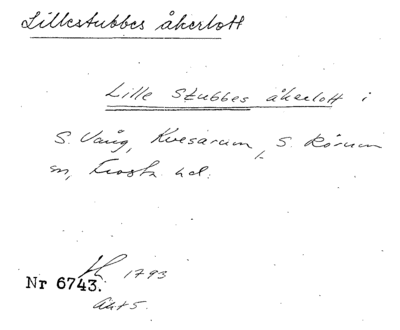 Lillestubbes åkerlott
Lille Stubbes åkerlott i
S. Vång, Kvesarum, S. Rörum
sn, Frosta hd.
1793
Nr 6743.
Akt 5.